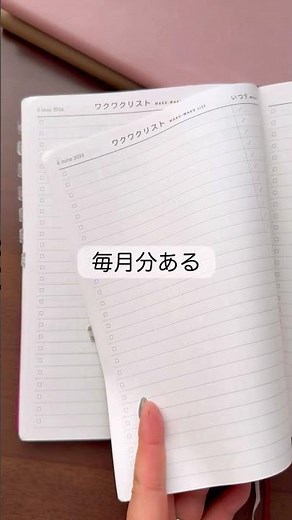 5 may 2026
ワクワクリスト
いつ?
6 june 2026
ワクワクリスト WAKU-WAKU LIST
毎月分ある